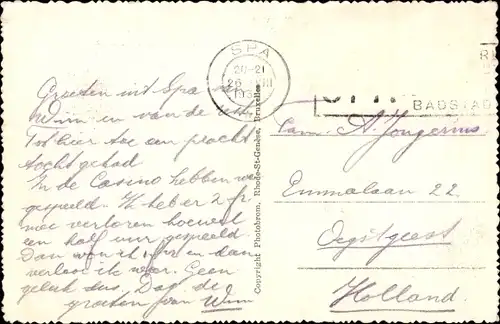 SPA
20-21
26 VIII
BADSTAD
Groeten uit Spa
Wim en van de
Tot hier toe een pracht
tocht gehad
In de Casino hebben we
gespeeld. Ik heb er 2 fr.
mee verloren hoewel
een half uur gespeeld.
Dan won ik 1 fr en dan
verloor ik weer. Geen
geluk dus. Dag de
groeten van Wim
Copyright Photobrom, Rhode-St-Genèse, Bruxelles
Fam. A. Jongerius
Emmalaan 22
Oegstgeest
Holland.